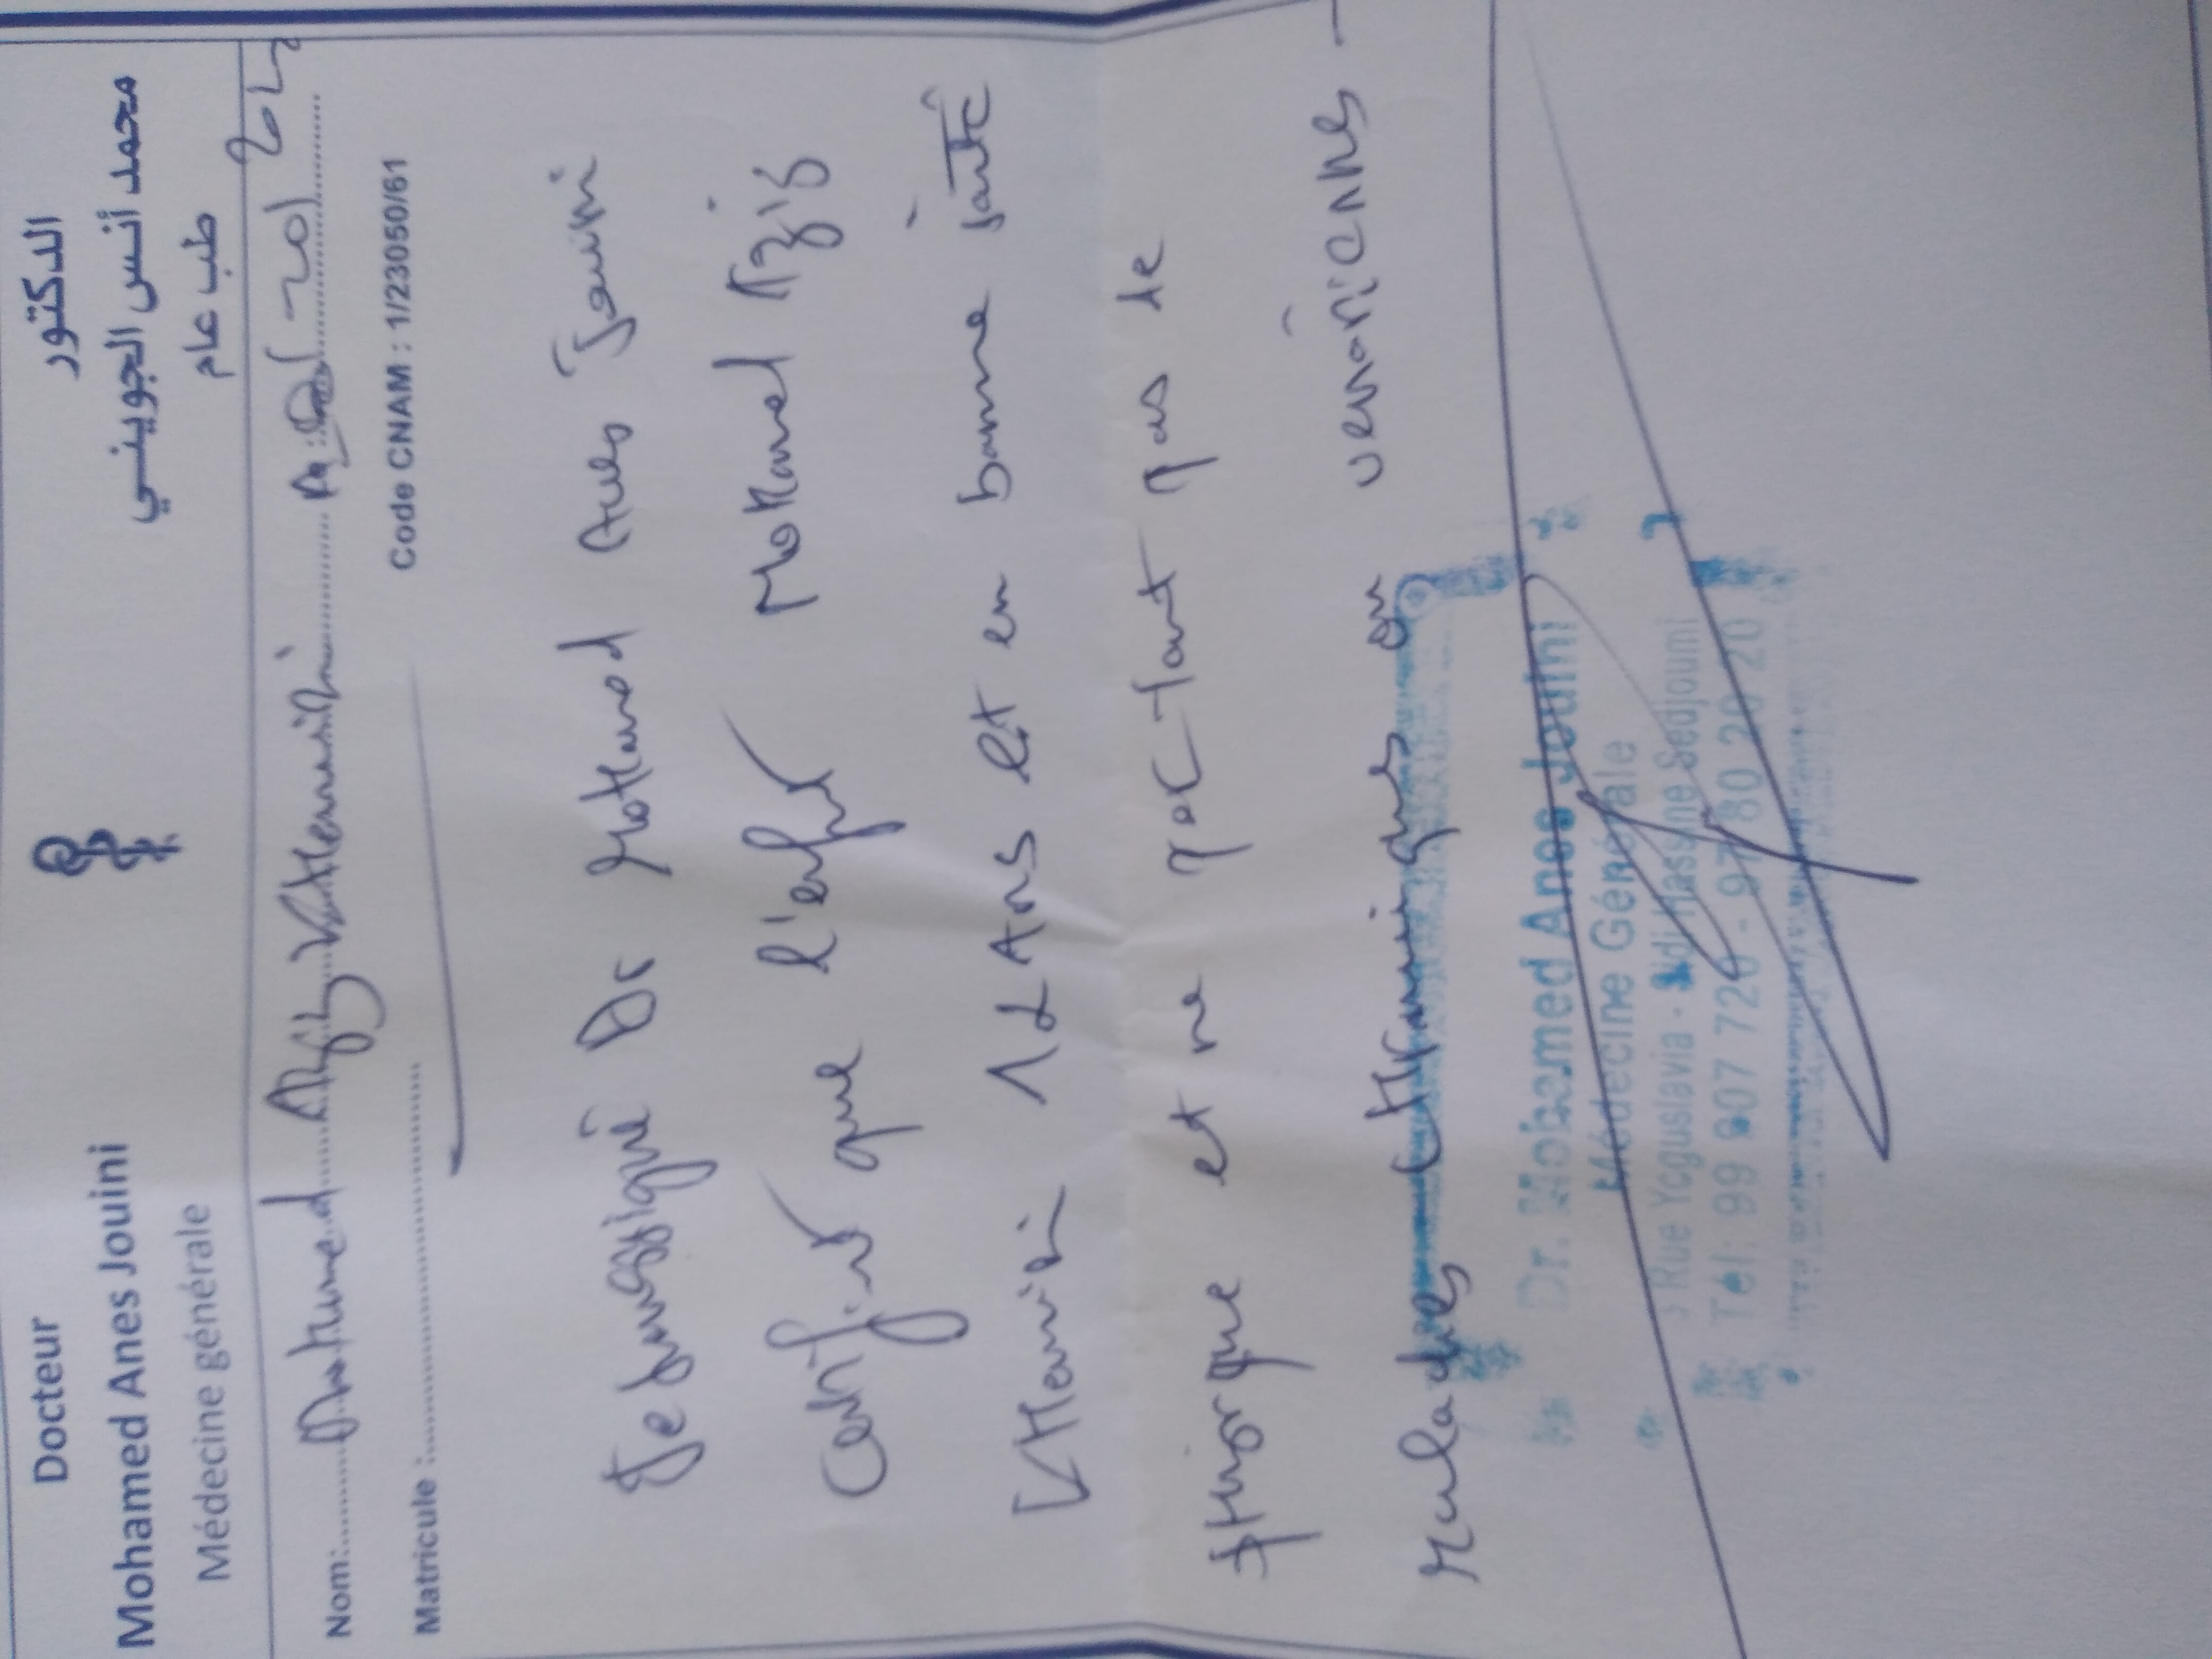 Docteur
Mohamed Anes Jouini
Médecine générale
الدكتور
محمد أنس الجويني
طب عام
Nom: Mohamed Aziz Khemiri
Matricule :
Code CNAM : 1/23050/61
Je soussigné Dr Mohamed Anes Jouini
Certifie que l'enft Mohamed Aziz
Khemiri 12 Ans est en bonne santé
phisique et ne portant pas de
maladies chroniques ou
Dr. Mohamed Anes Jouini
Médecine Générale
Rue Yoguslavia - Sidi Hassine Sedjoumi
Tél: 99 907 720 - 97 80 20 20